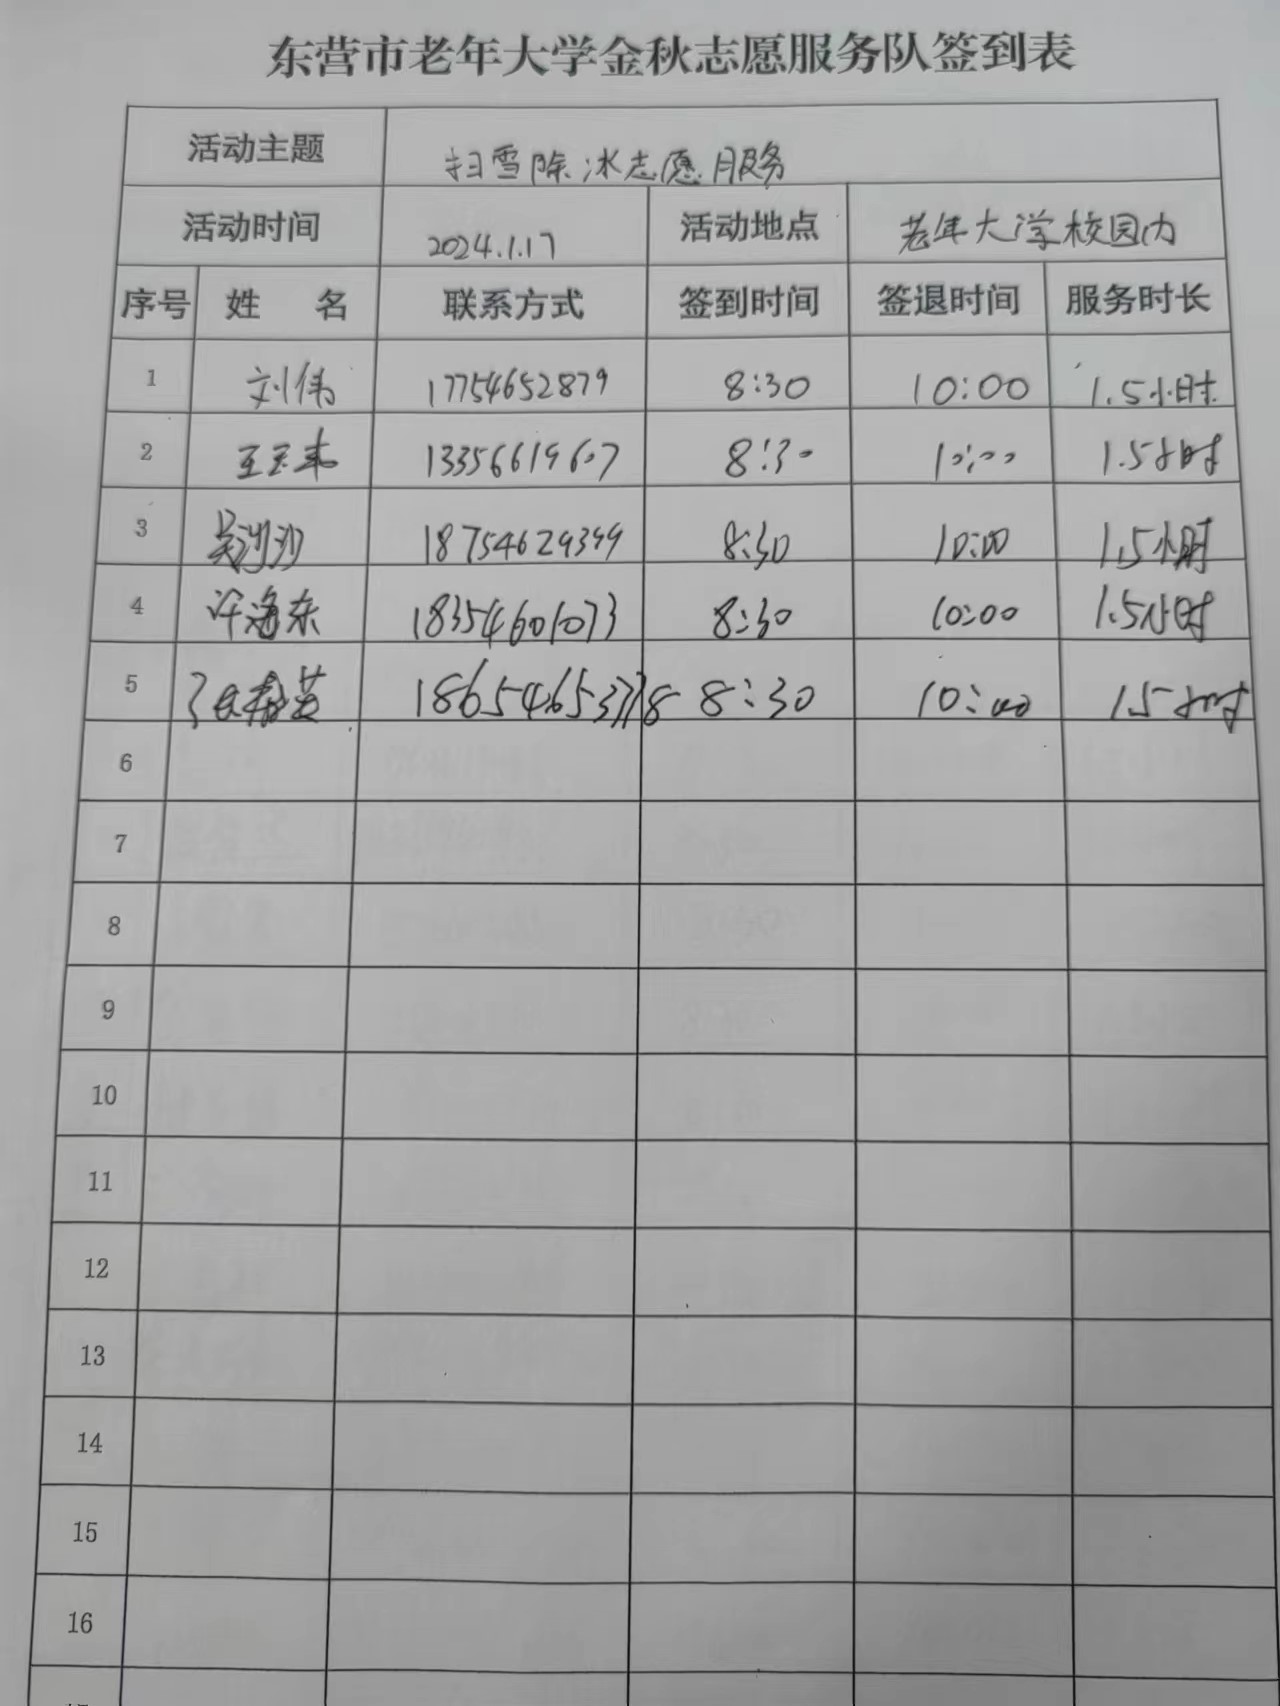 东营市老年大学金秋志愿服务队签到表
活动主题 扫雪除冰志愿服务
活动时间 2024.1.17 活动地点 老年大学校园内
序号 姓 名 联系方式 签到时间 签退时间 服务时长
1 刘伟 17754652879 8:30 10:00 1.5小时
2 王玉丰 13356619607 8:30 10:00 1.5小时
3 吴沙沙 18754629399 8:30 10:00 1.5小时
4 许海东 18354601073 8:30 10:00 1.5小时
5 8:30 10:00 1.5小时
6
7
8
9
10
11
12
13
14
15
16